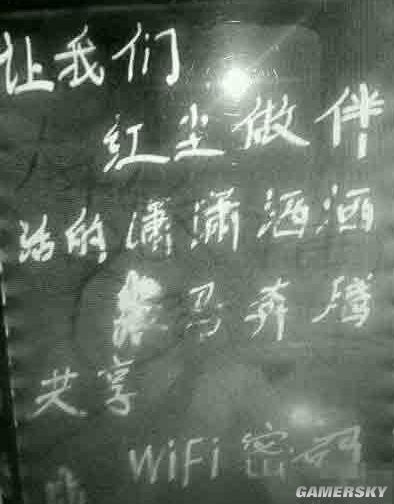 让我们
红尘做伴
活的潇潇洒洒
策马奔腾
共享
WiFi 密码
GAMERSKY